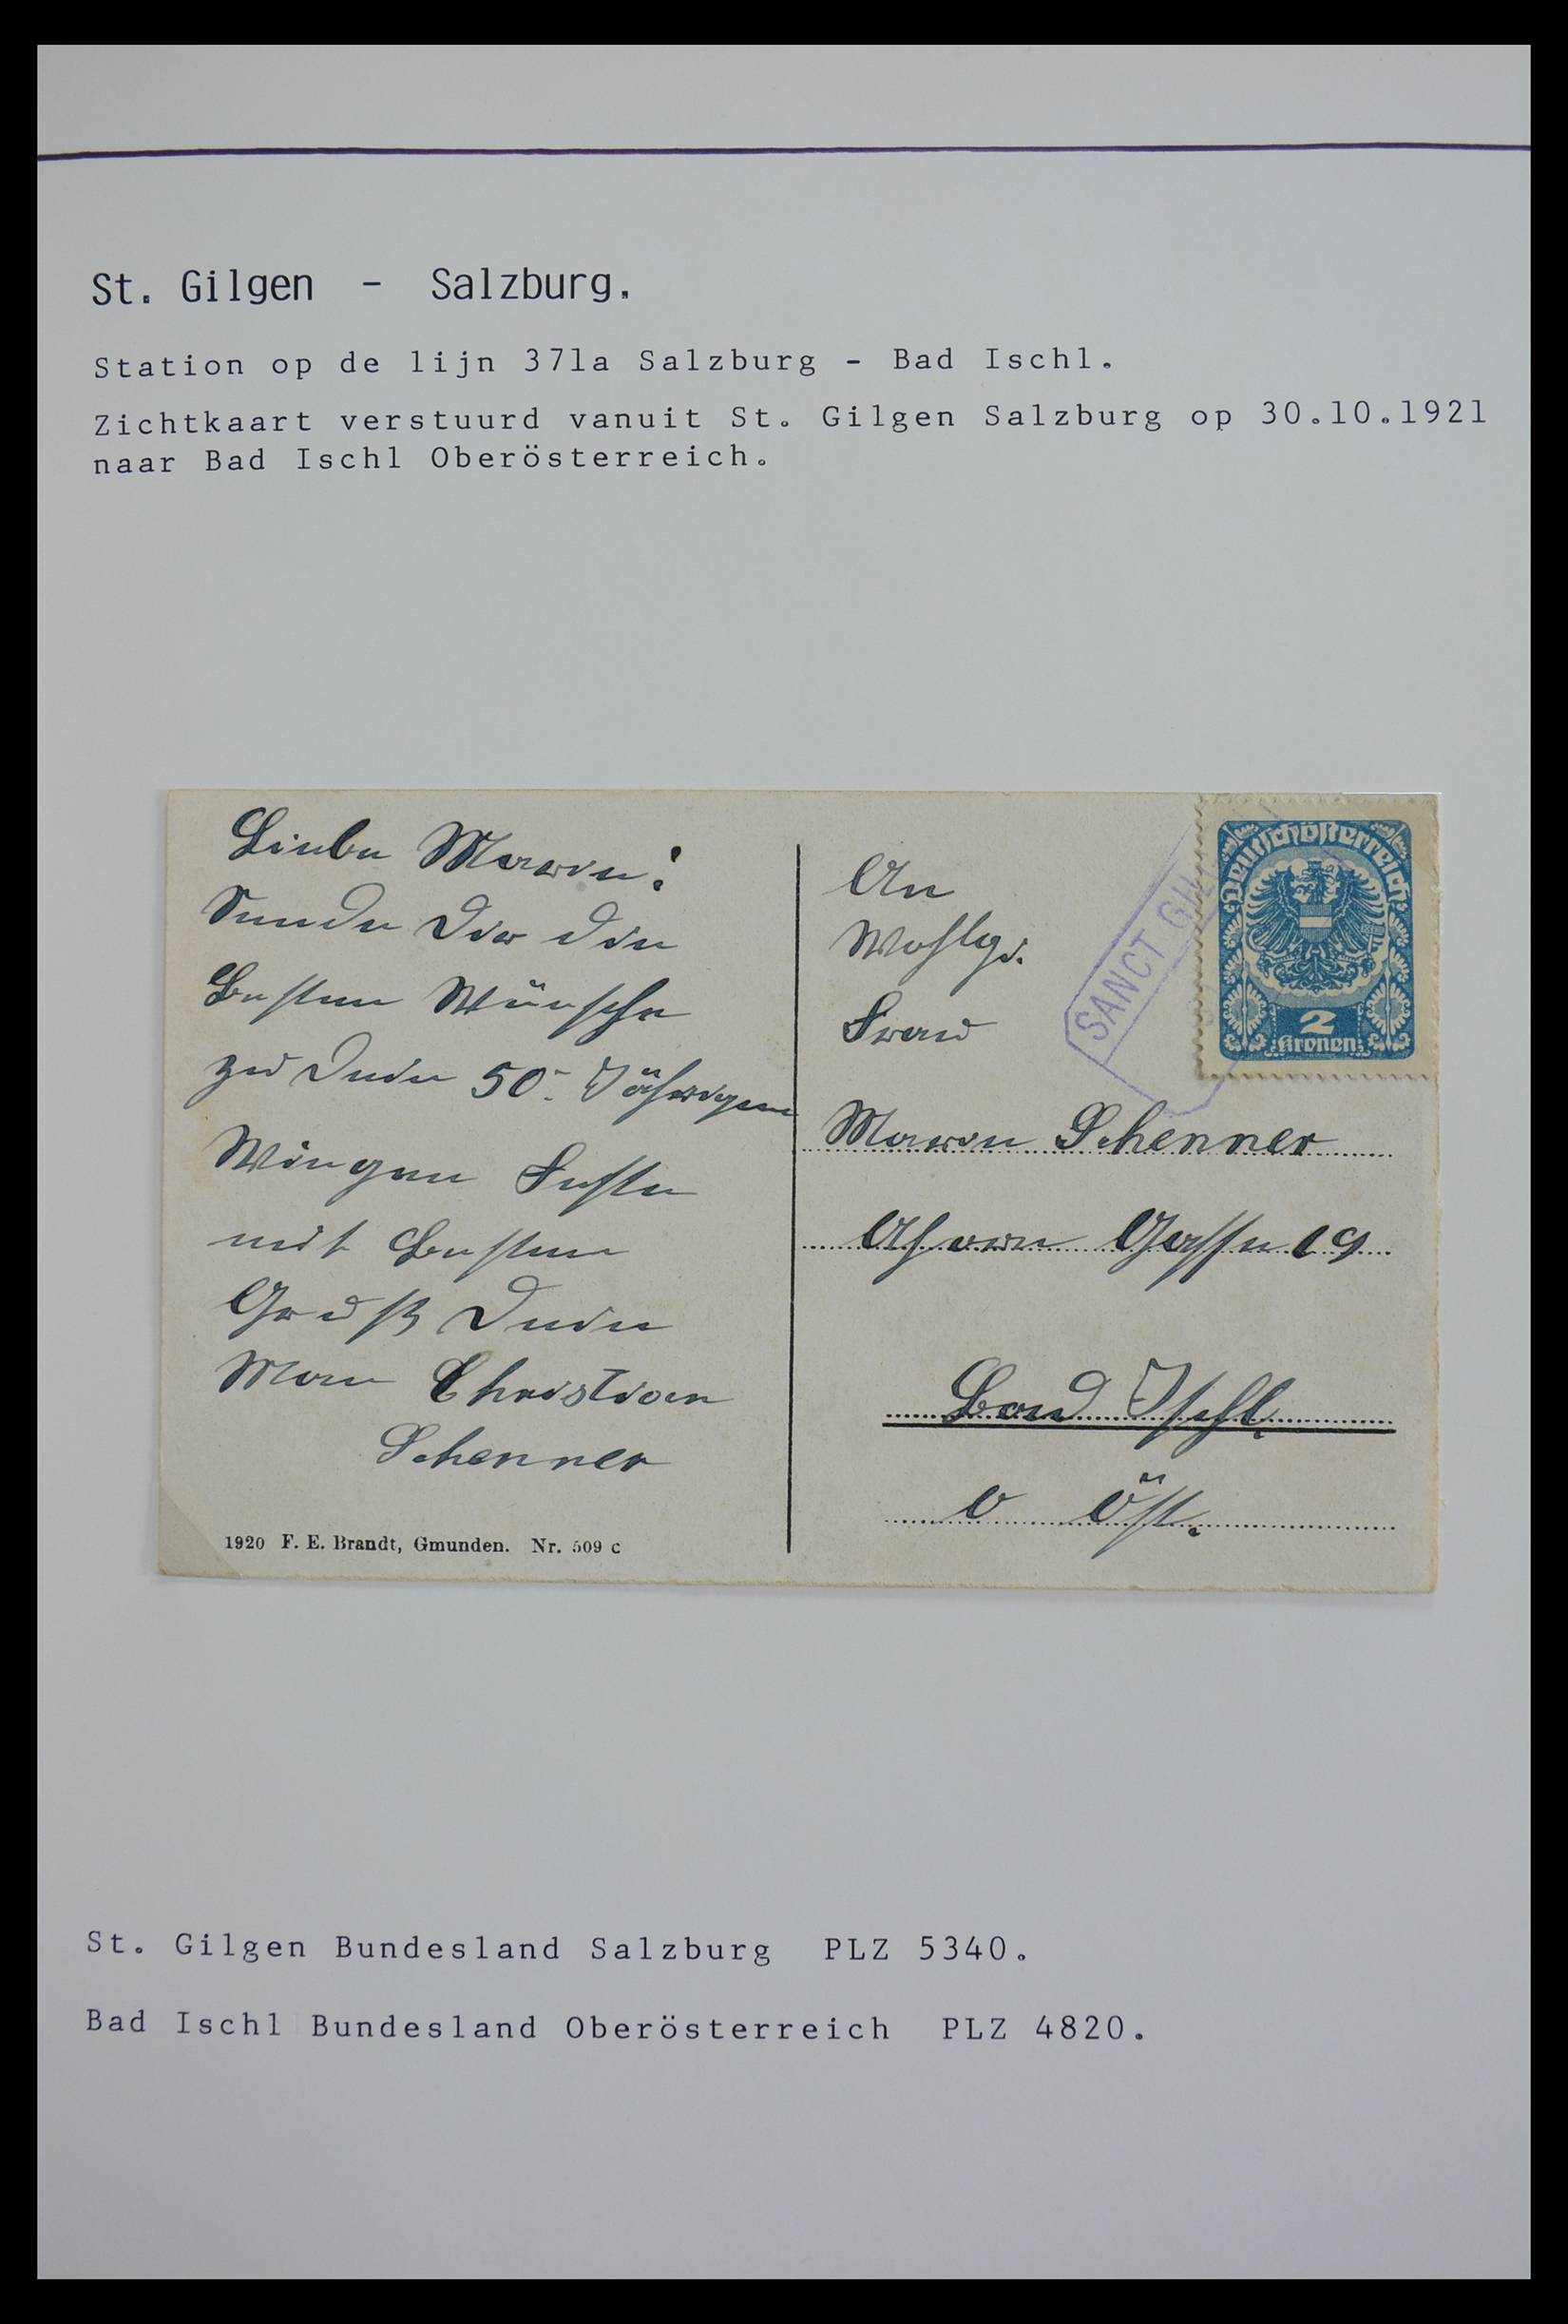 St. Gilgen - Salzburg.
Station op de lijn 371a Salzburg - Bad Ischl.
Zichtkaart verstuurd vanuit St. Gilgen Salzburg op 30.10.1921
naar Bad Ischl Oberösterreich.
Liebe Marie!
Sende Dir die
Besten Wünsche
zu Deine 50. Jährigen
Wiegen Feste
mit Besten
Gruß Dein
Man Christian
Schenner
1920 F. E. Brandt, Gmunden. Nr. 509 c
An
Wohlg.
Frau
Marie Schenner
Ahorn Gasse 19
Bad Ischl.
O Öst.
SANCT GIL
Deutschösterreich
2
Kronen
St. Gilgen Bundesland Salzburg PLZ 5340.
Bad Ischl Bundesland Oberösterreich PLZ 4820.